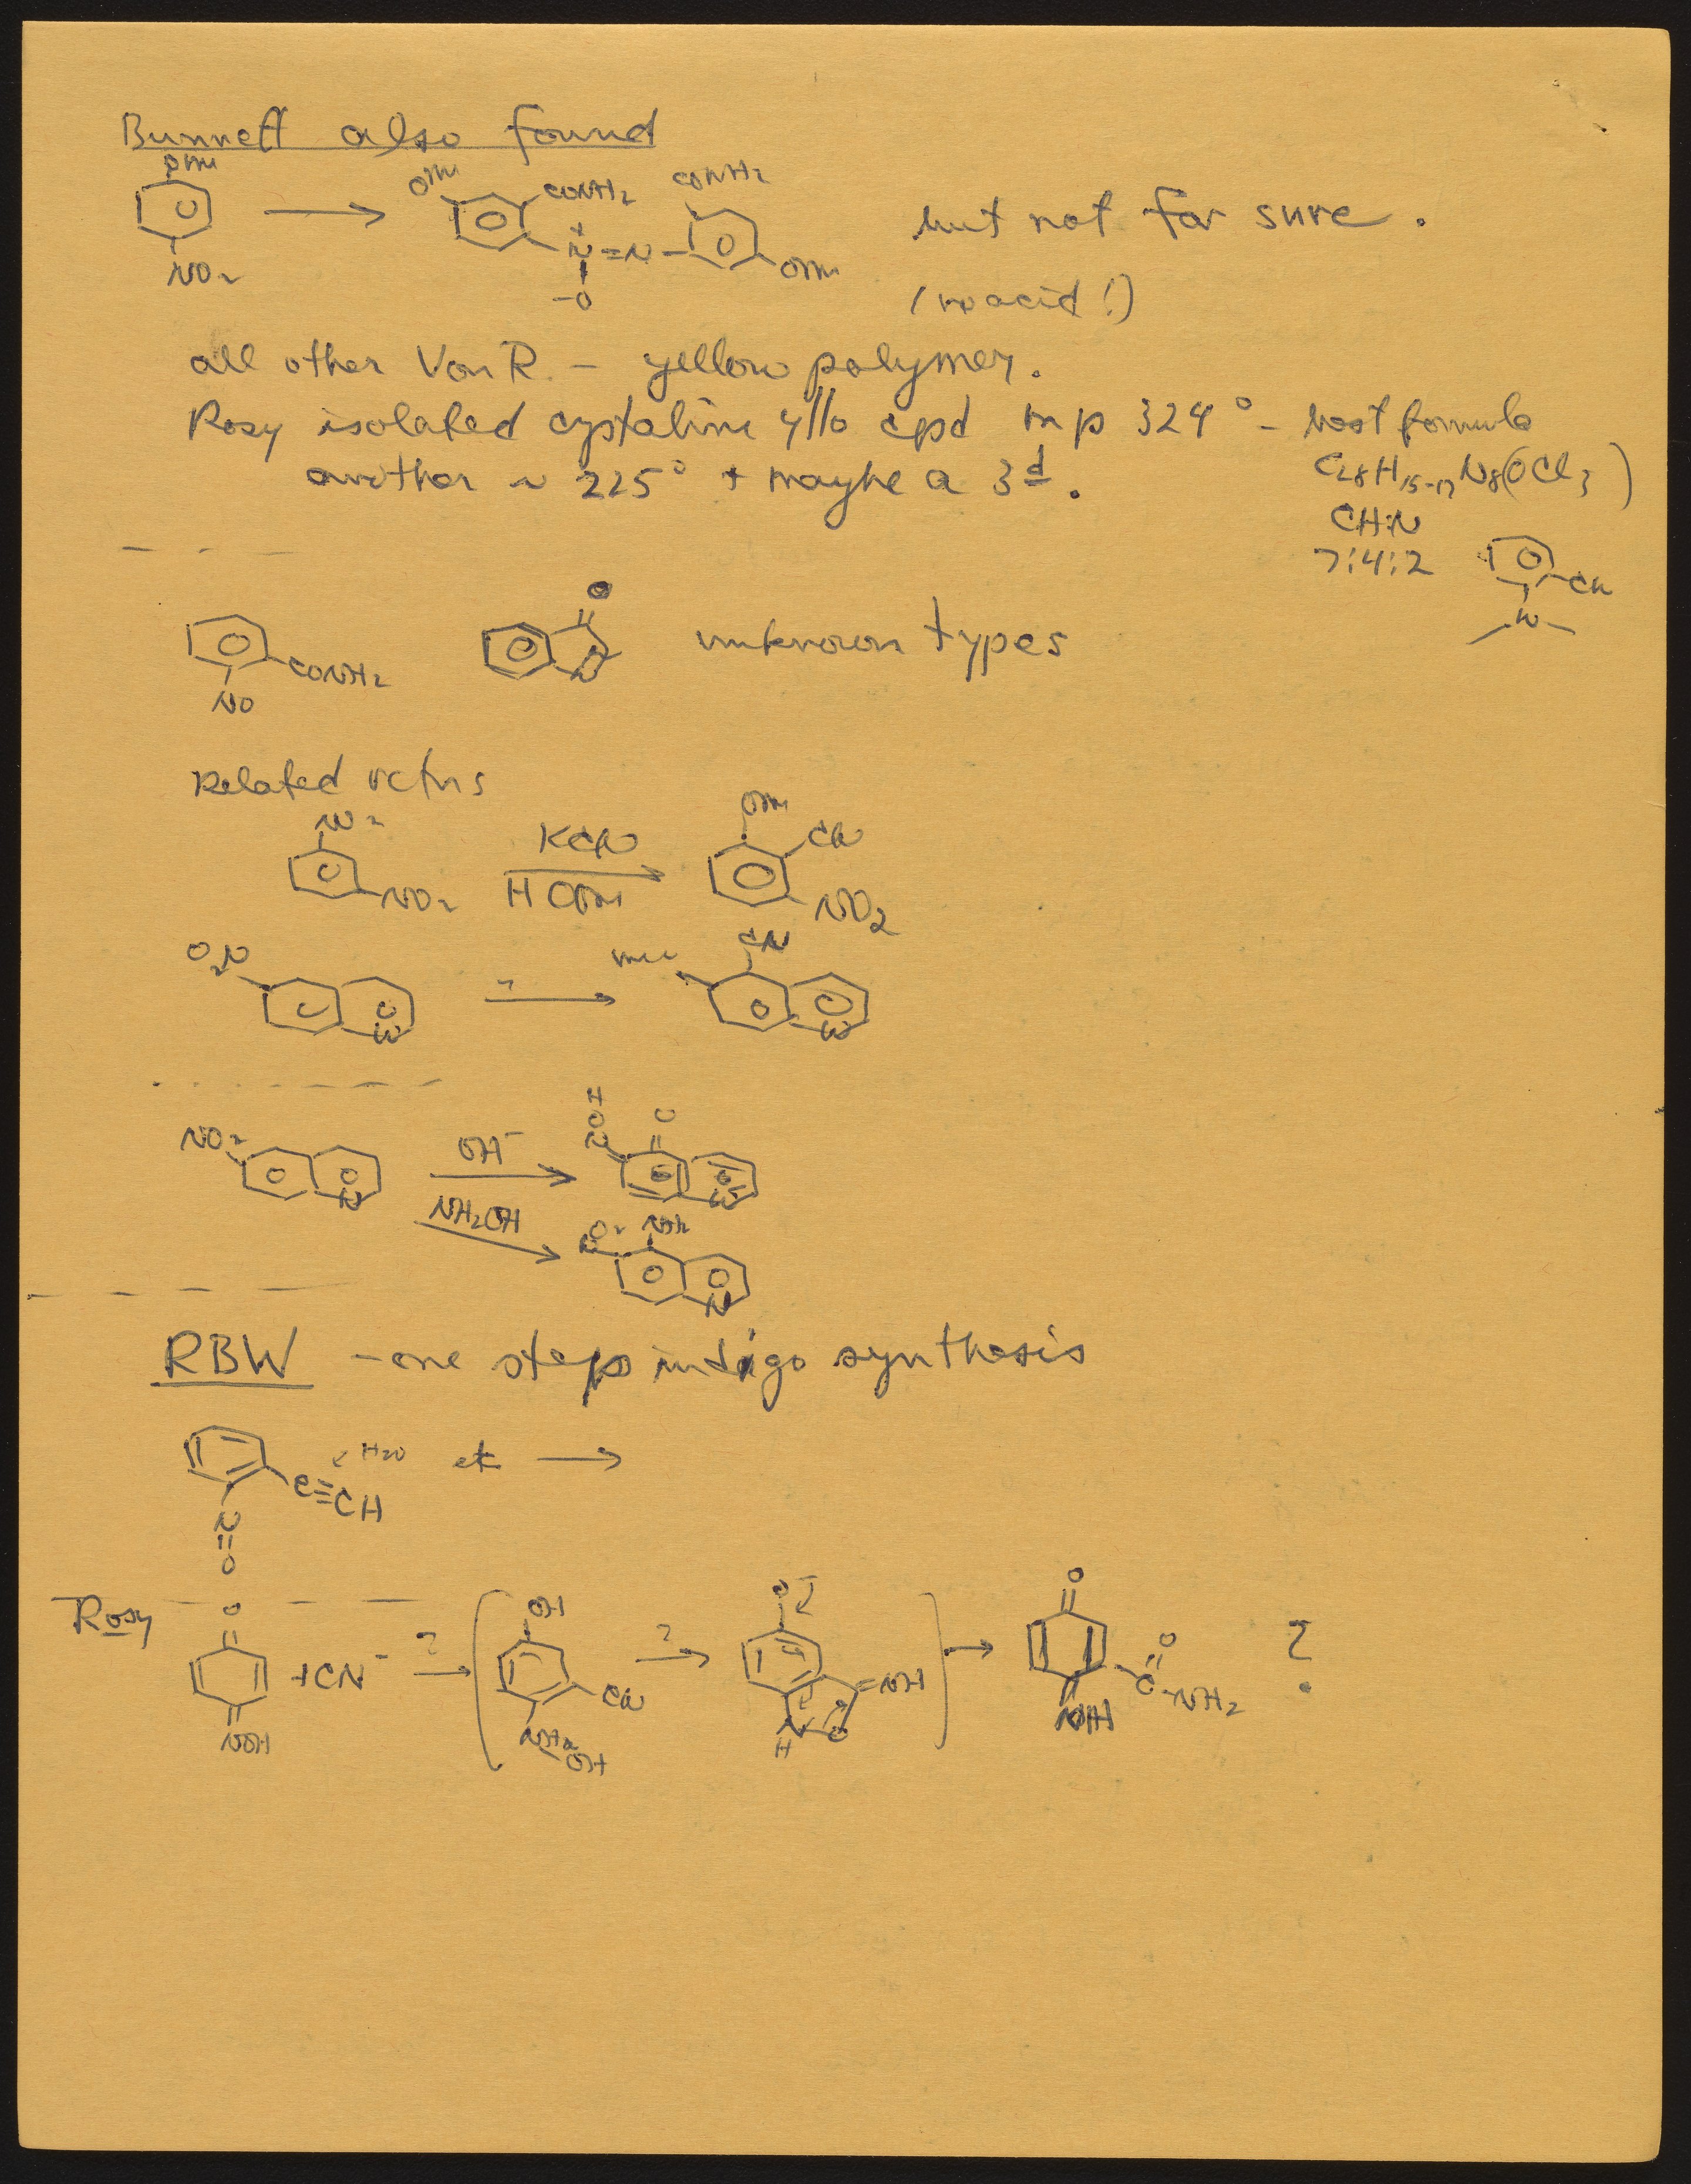 Bunnett also found
OMe
NO2
OMe
CONH2
CONH2
N=N
+
-O
OMe
but not for sure.
(no acid!)
all other Von R. - yellow polymer.
Rosy isolated crystaline yllo cpd mp 324° - best formula
C28H15-17N8(OCl3)
another ~ 225° + maybe a 3d.
CHN
7:4:2
CN
N
CONH2
NO
O
N
N
unknown types
Related rctns
NO2
NO2
KCN
HOMe
OMe
CN
NO2
O2N
N
?
CN
N
NO2
N
OH-
NH2OH
H
O
N
O
N
NO2 NH2
N
RBW - one steps indigo synthesis
C≡CH
H2O
etc
N
O
Rosy
O
NOH
+CN-
?
OH
CN
NH
OH
?
O
NH
O
N
H
O
NH
O
C-NH2
?